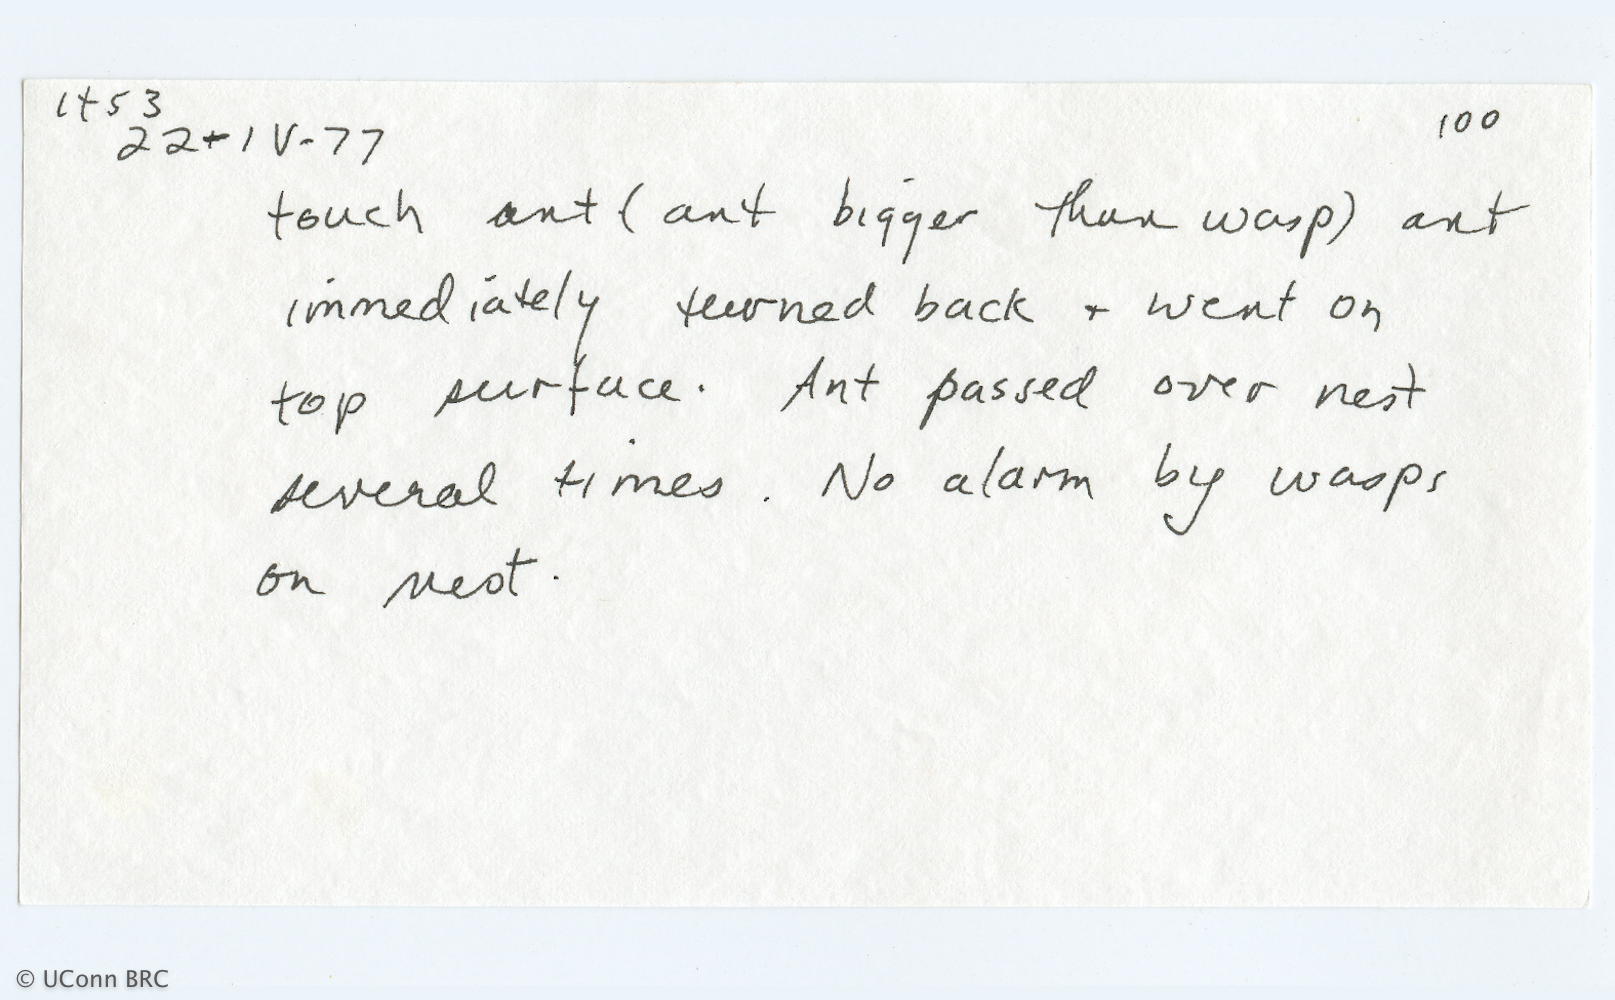 1+53
100
22-IV-77
touch ant (ant bigger than wasp) ant
immediately turned back + went on
top surface. Ant passed over nest
several times. No alarm by wasps
on nest.
© UConn BRC